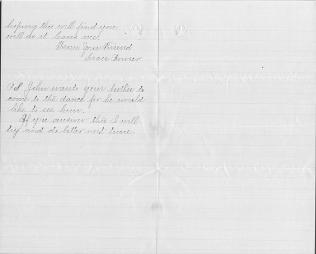 hoping this will find you
will as it leaves me.
From your Friend
Grace
P.S. John wants your brother to
come to the dance for he would
like to see him.
If you answer this I will
try and do better next time.